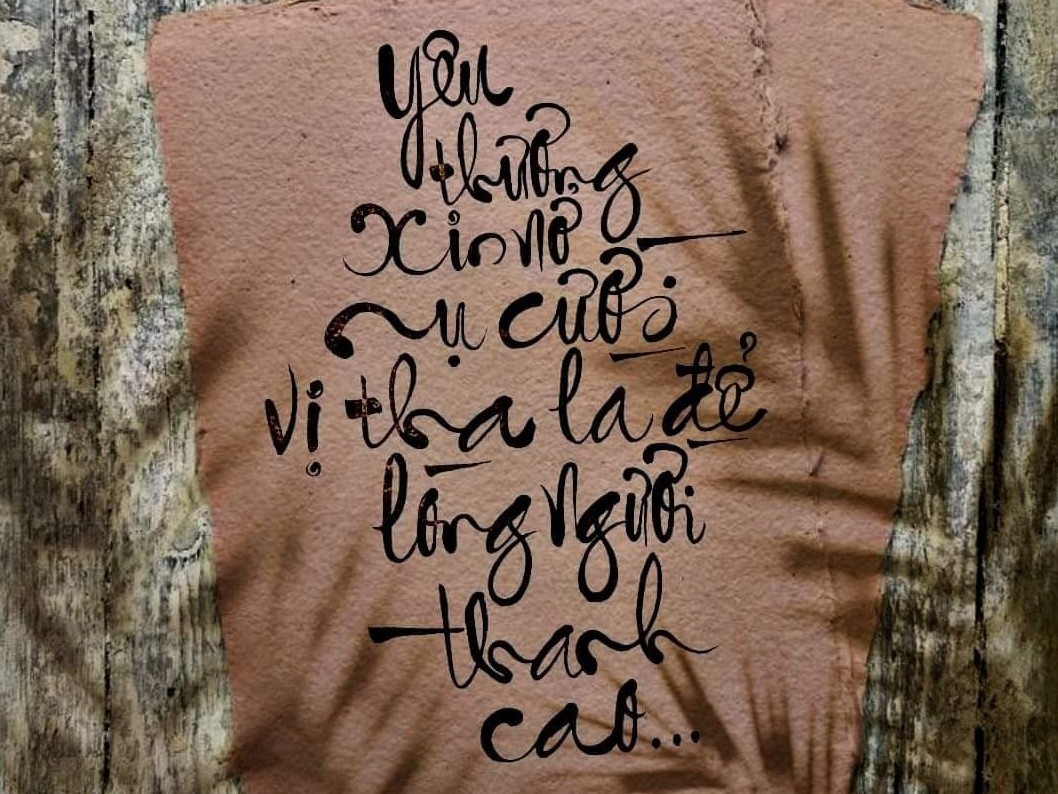 Yêu
thương
xin nở
nụ cười
vị tha là để
lòng người
thanh
cao...